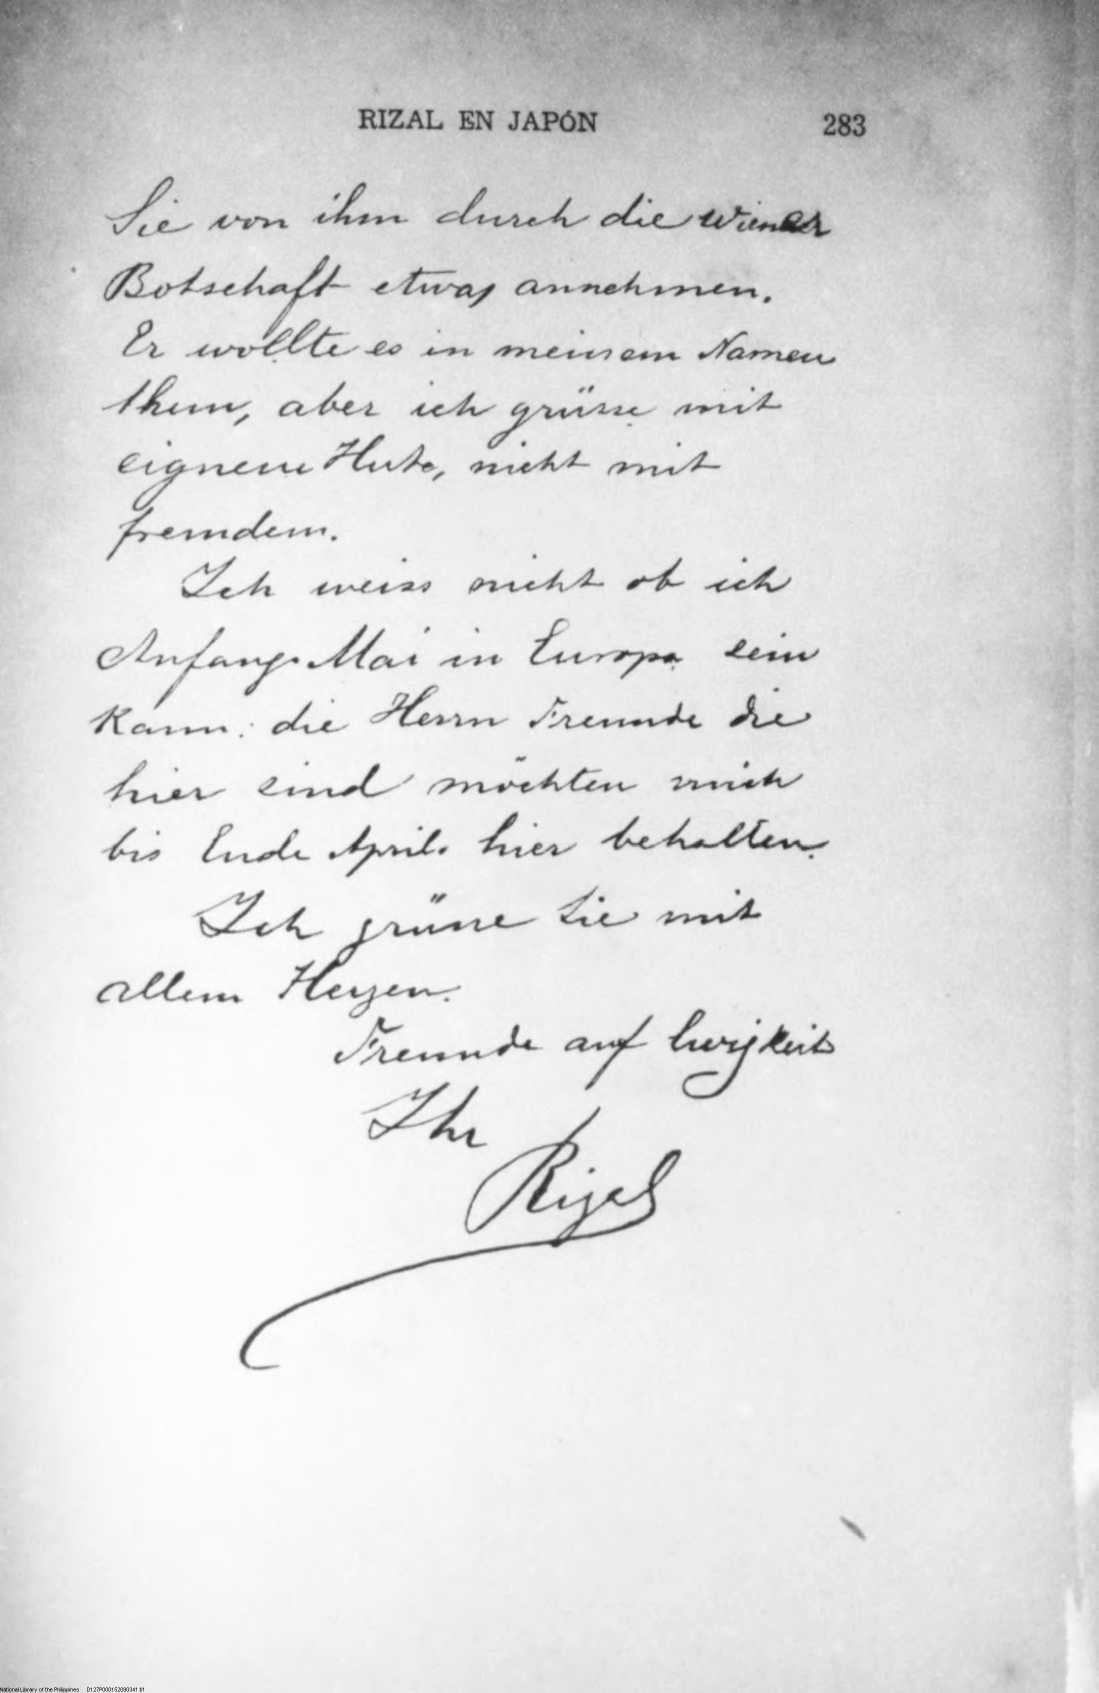 RIZAL EN JAPÓN 283
Sie von ihm durch die Wiener
Botschaft etwas annehmen.
Er wollte es in meinem Namen
thun, aber ich grüsse mit
eignem Hute, nicht mit
fremdem.
Ich weiss nicht ob ich
Anfangs Mai in Europa sein
kann: die Herrn Freunde die
hier sind möchten mich
bis Ende April hier behalten.
Ich grüsse Sie mit
allem Herzen.
Freunde auf Ewigkeit
Ihr
Rizal
National Library of the Philippines